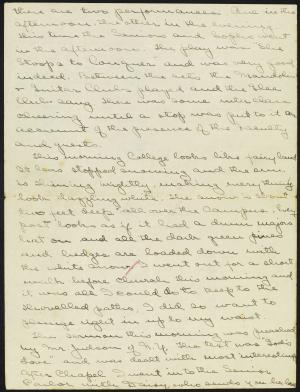 there are two performances. One in the
afternoon, the other in the evening.
This time the Seniors and Sophs went
in the afternoon. The play was "She
Stoops to Conquer" and was very good
indeed. Between the acts the Mandolin
& Guitar Clubs played and the Glee
Club sang. There was some
cheering until a stop was put to it on
account of the presence of the Faculty
and guests.
This morning College looks like fairy land.
It has stopped snowing and the sun
is shining brightly, making everything
look dazzling white. The snow is about
two feet deep all over the Campus. Every
post looks as if it had a drum majors
hat on and all the dark green pines
and hedges are loaded down with
the white snow. I went out for a short
walk before church this morning and
it was all I could do to keep to the
shovelled paths, I did so want to
plunge right in up to my waist.
The sermon this morning was preached
by Mr. Judson of N.Y. The text was "God's
love" and was dealt with most interestingly.
After Chapel I went in to the Senior
Parlor with Daisy, who sends you her